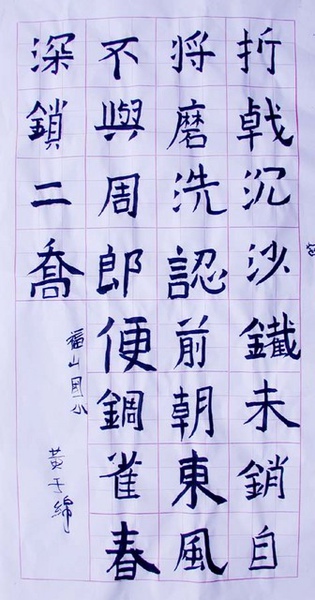 折戟沉沙鐵未銷自
将磨洗認前朝東風
不與周郎便錭雀春
深鎖二喬
福山国小
黄于綿